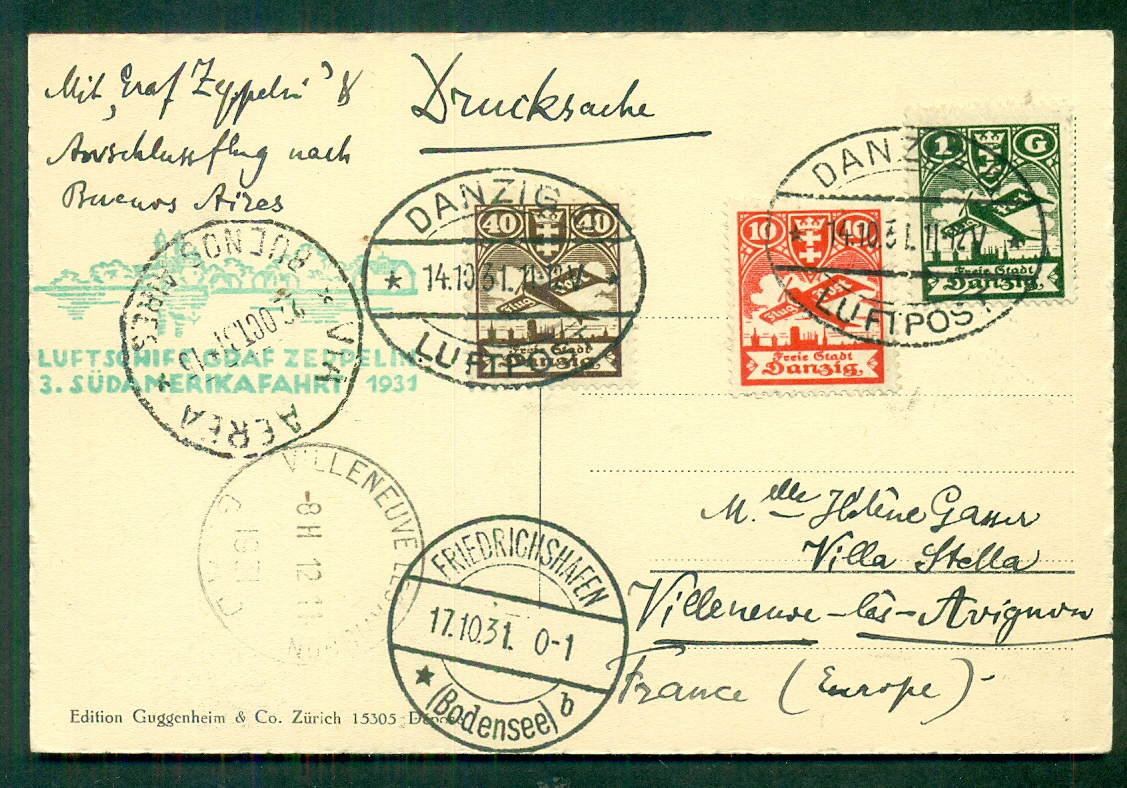 Mit „Graf Zeppelin" &
Anschlussflug nach
Buenos Aires
Drucksache
DANZIG
14.10.31. 11-12V
LUFTPOST
40 40
Flug Post
Freie Stadt
Danzig
10 10
Flug
Freie Stadt
Danzig
DANZIG
14.10.31. 11-12V
LUFTPOST
1 G
Freie Stadt
Danzig
BUENOS AIRES
OCT.31
VIA AEREA
LUFTSCHIFF GRAF ZEPPELIN
3. SÜDAMERIKAFAHRT 1931
VILLENEUVE LES AVIGNON
-8H 12 11
1931
GARD
FRIEDRICHSHAFEN
17.10.31. 0-1
(Bodensee) b
M.elle Hélène Gasser
Villa Stella
Villeneuve-lès-Avignon
France (Europe)
Edition Guggenheim & Co. Zürich 15305 Déposé